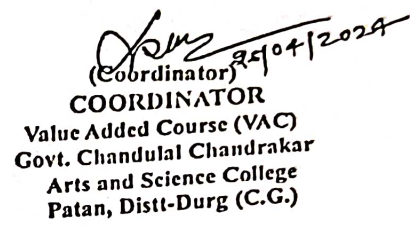 25/04/2024
(Coordinator)
COORDINATOR
Value Added Course (VAC)
Govt. Chandulal Chandrakar
Arts and Science College
Patan, Distt-Durg (C.G.)